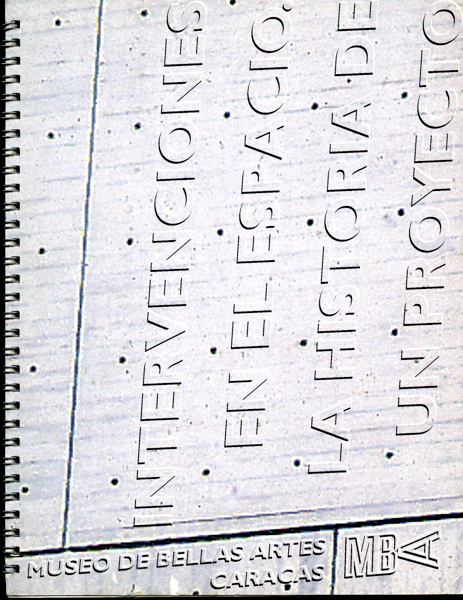 INTERVENCIONES
EN EL ESPACIO.
LA HISTORIA DE
UN PROYECTO
MUSEO DE BELLAS ARTES
CARACAS
MBA